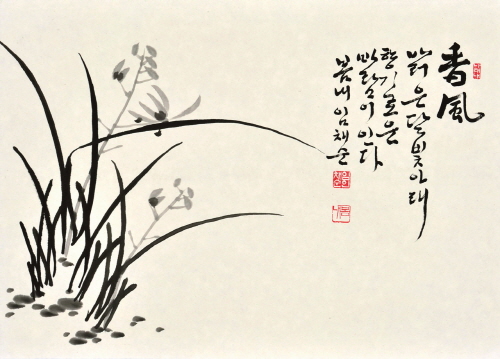 香風
밝은 달빛 아래
향기로운
바람이 인다
봄내 임채순